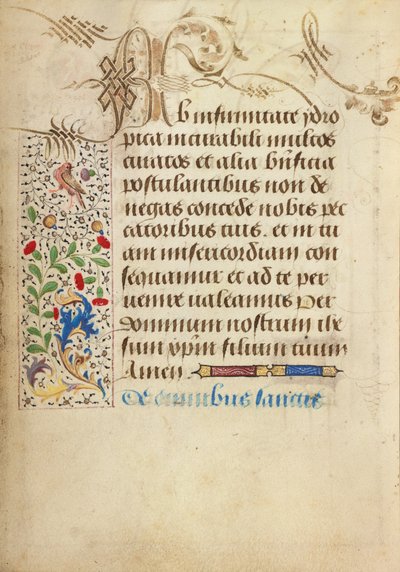 Ab infirmitate ydro
pica incurabili multos
curatos et alia bnficia
postulantibus non de
negas concede nobis pec
catoribus tuis. et in tu
am misericordiam con
sequamur et ad te per
venire valeamus Per
dominum nostrum ihe
sum xpm filium tuum
Amen
De omnibus sanctis